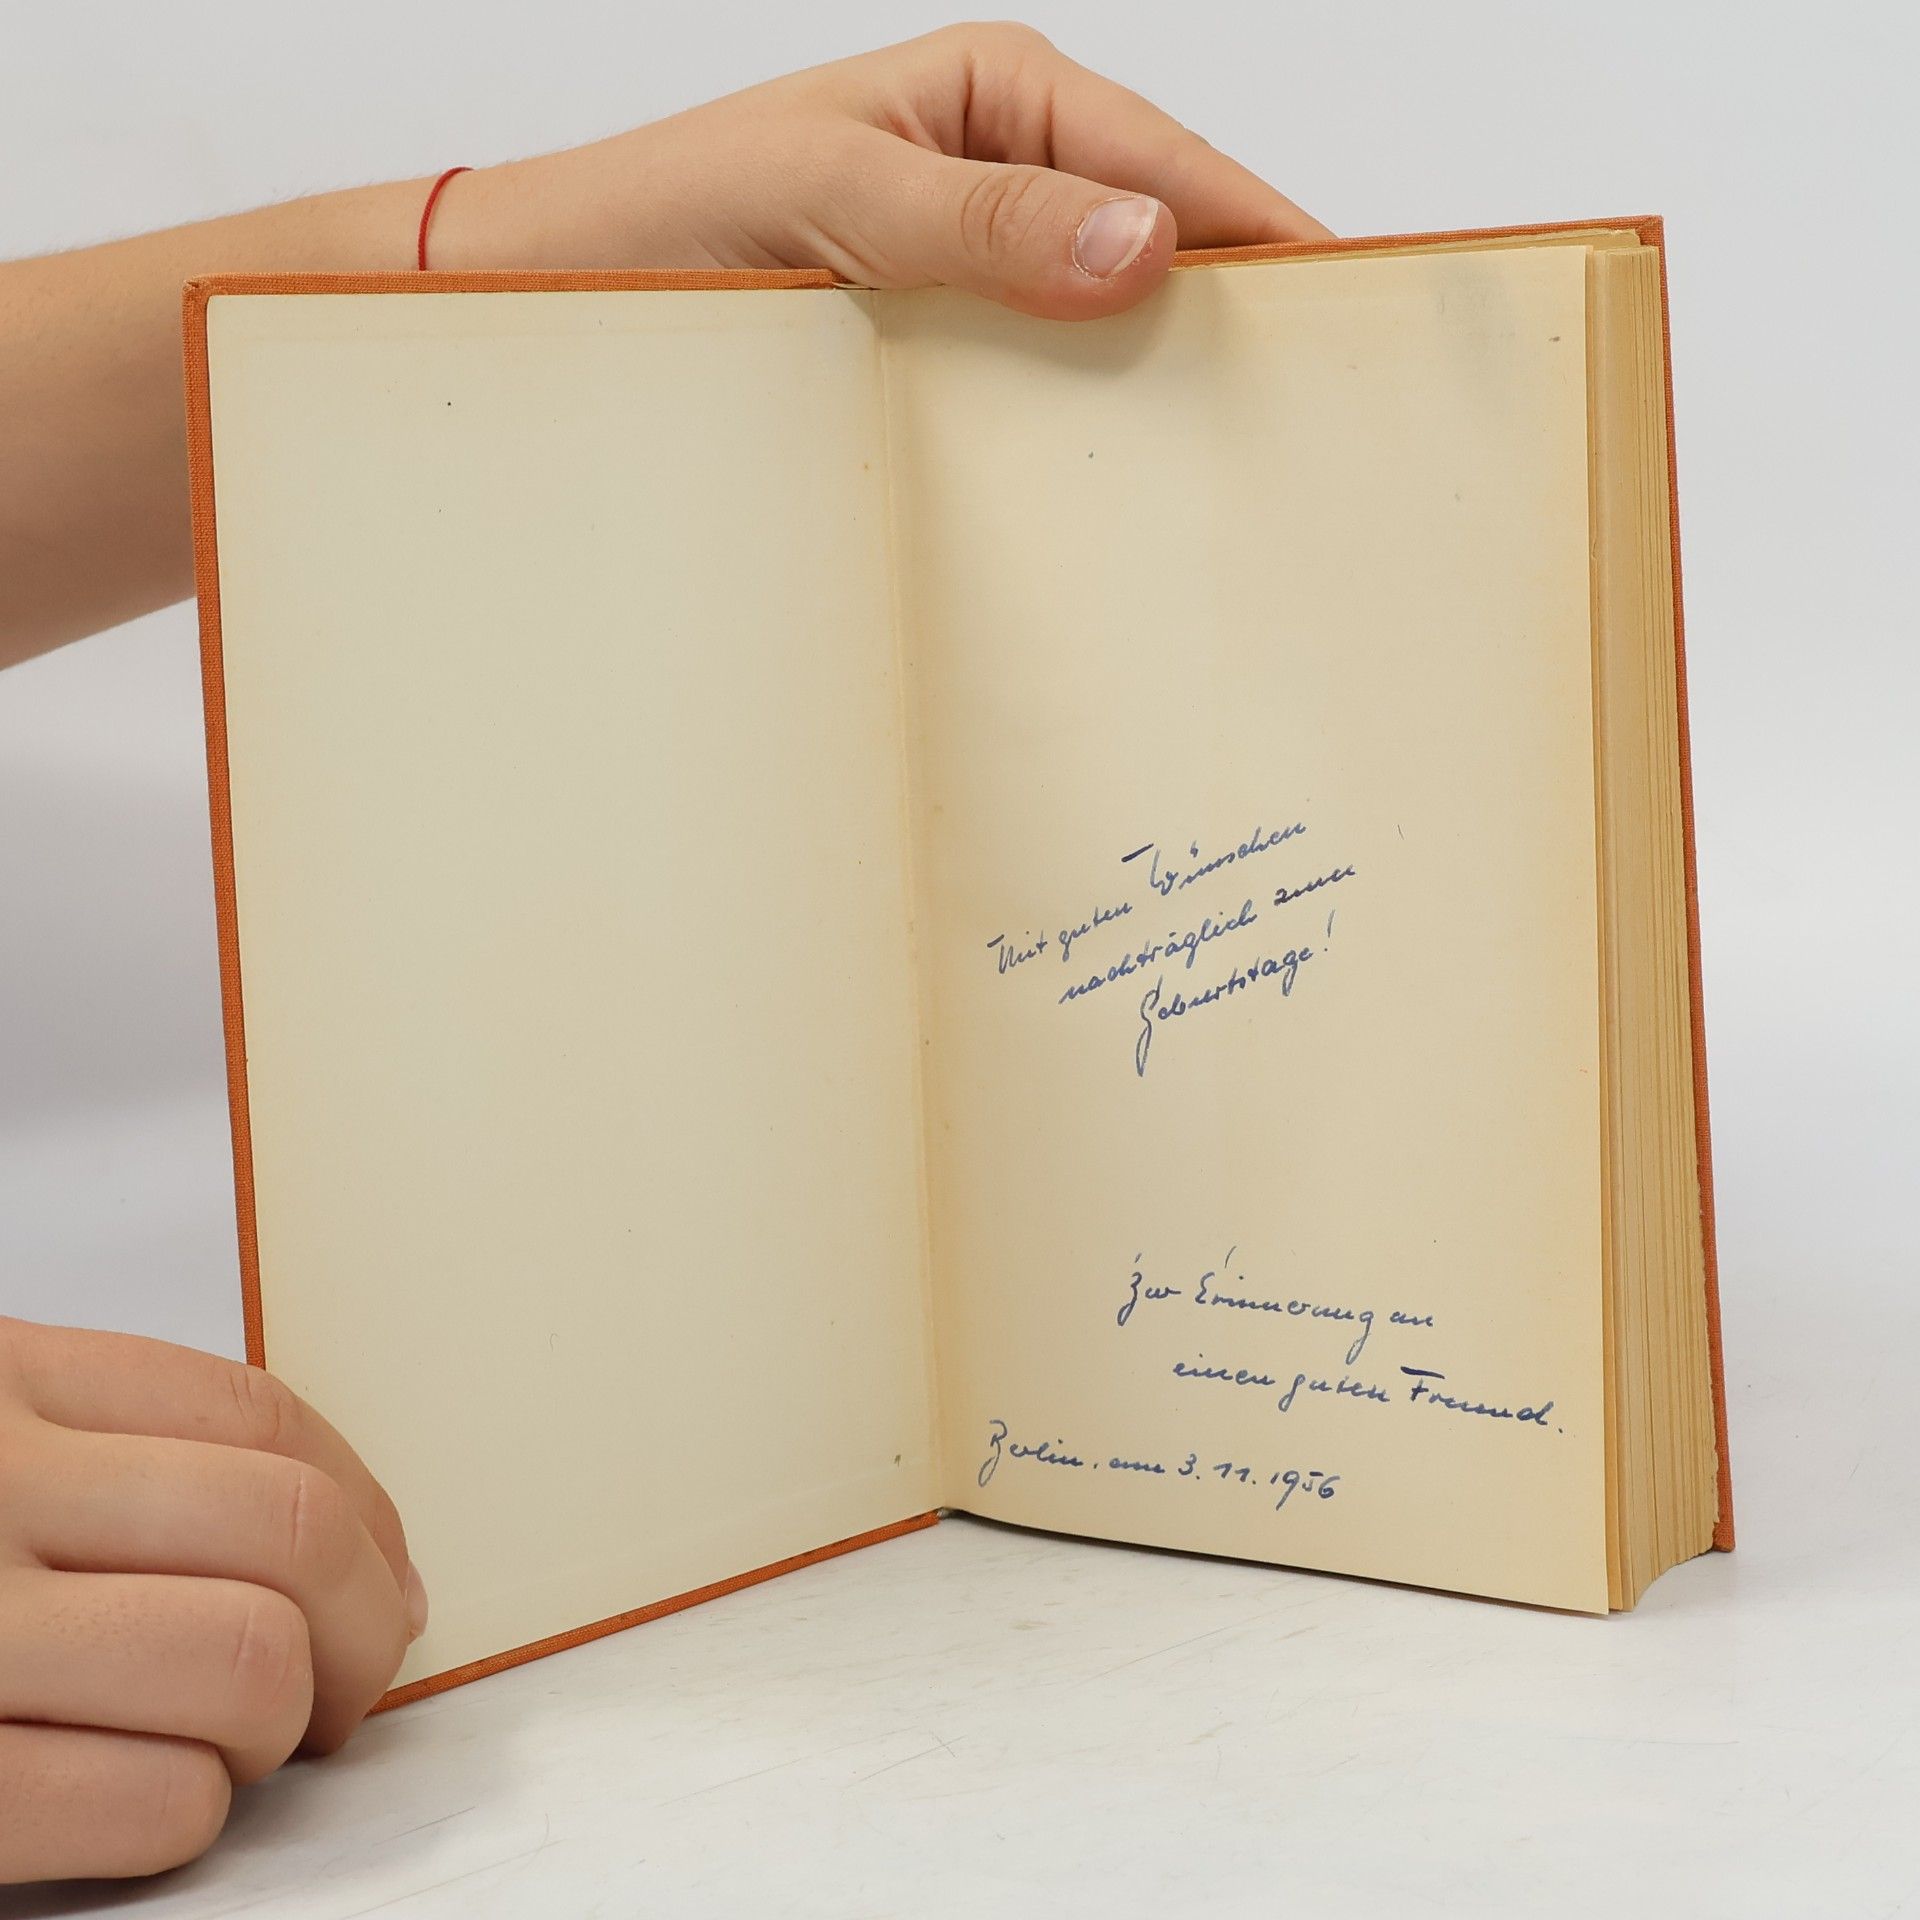 Mit guten Wünschen
nachträglich zum
Geburtstage!
Zur Erinnerung an
einen guten Freund.
Berlin, am 3. 11. 1956